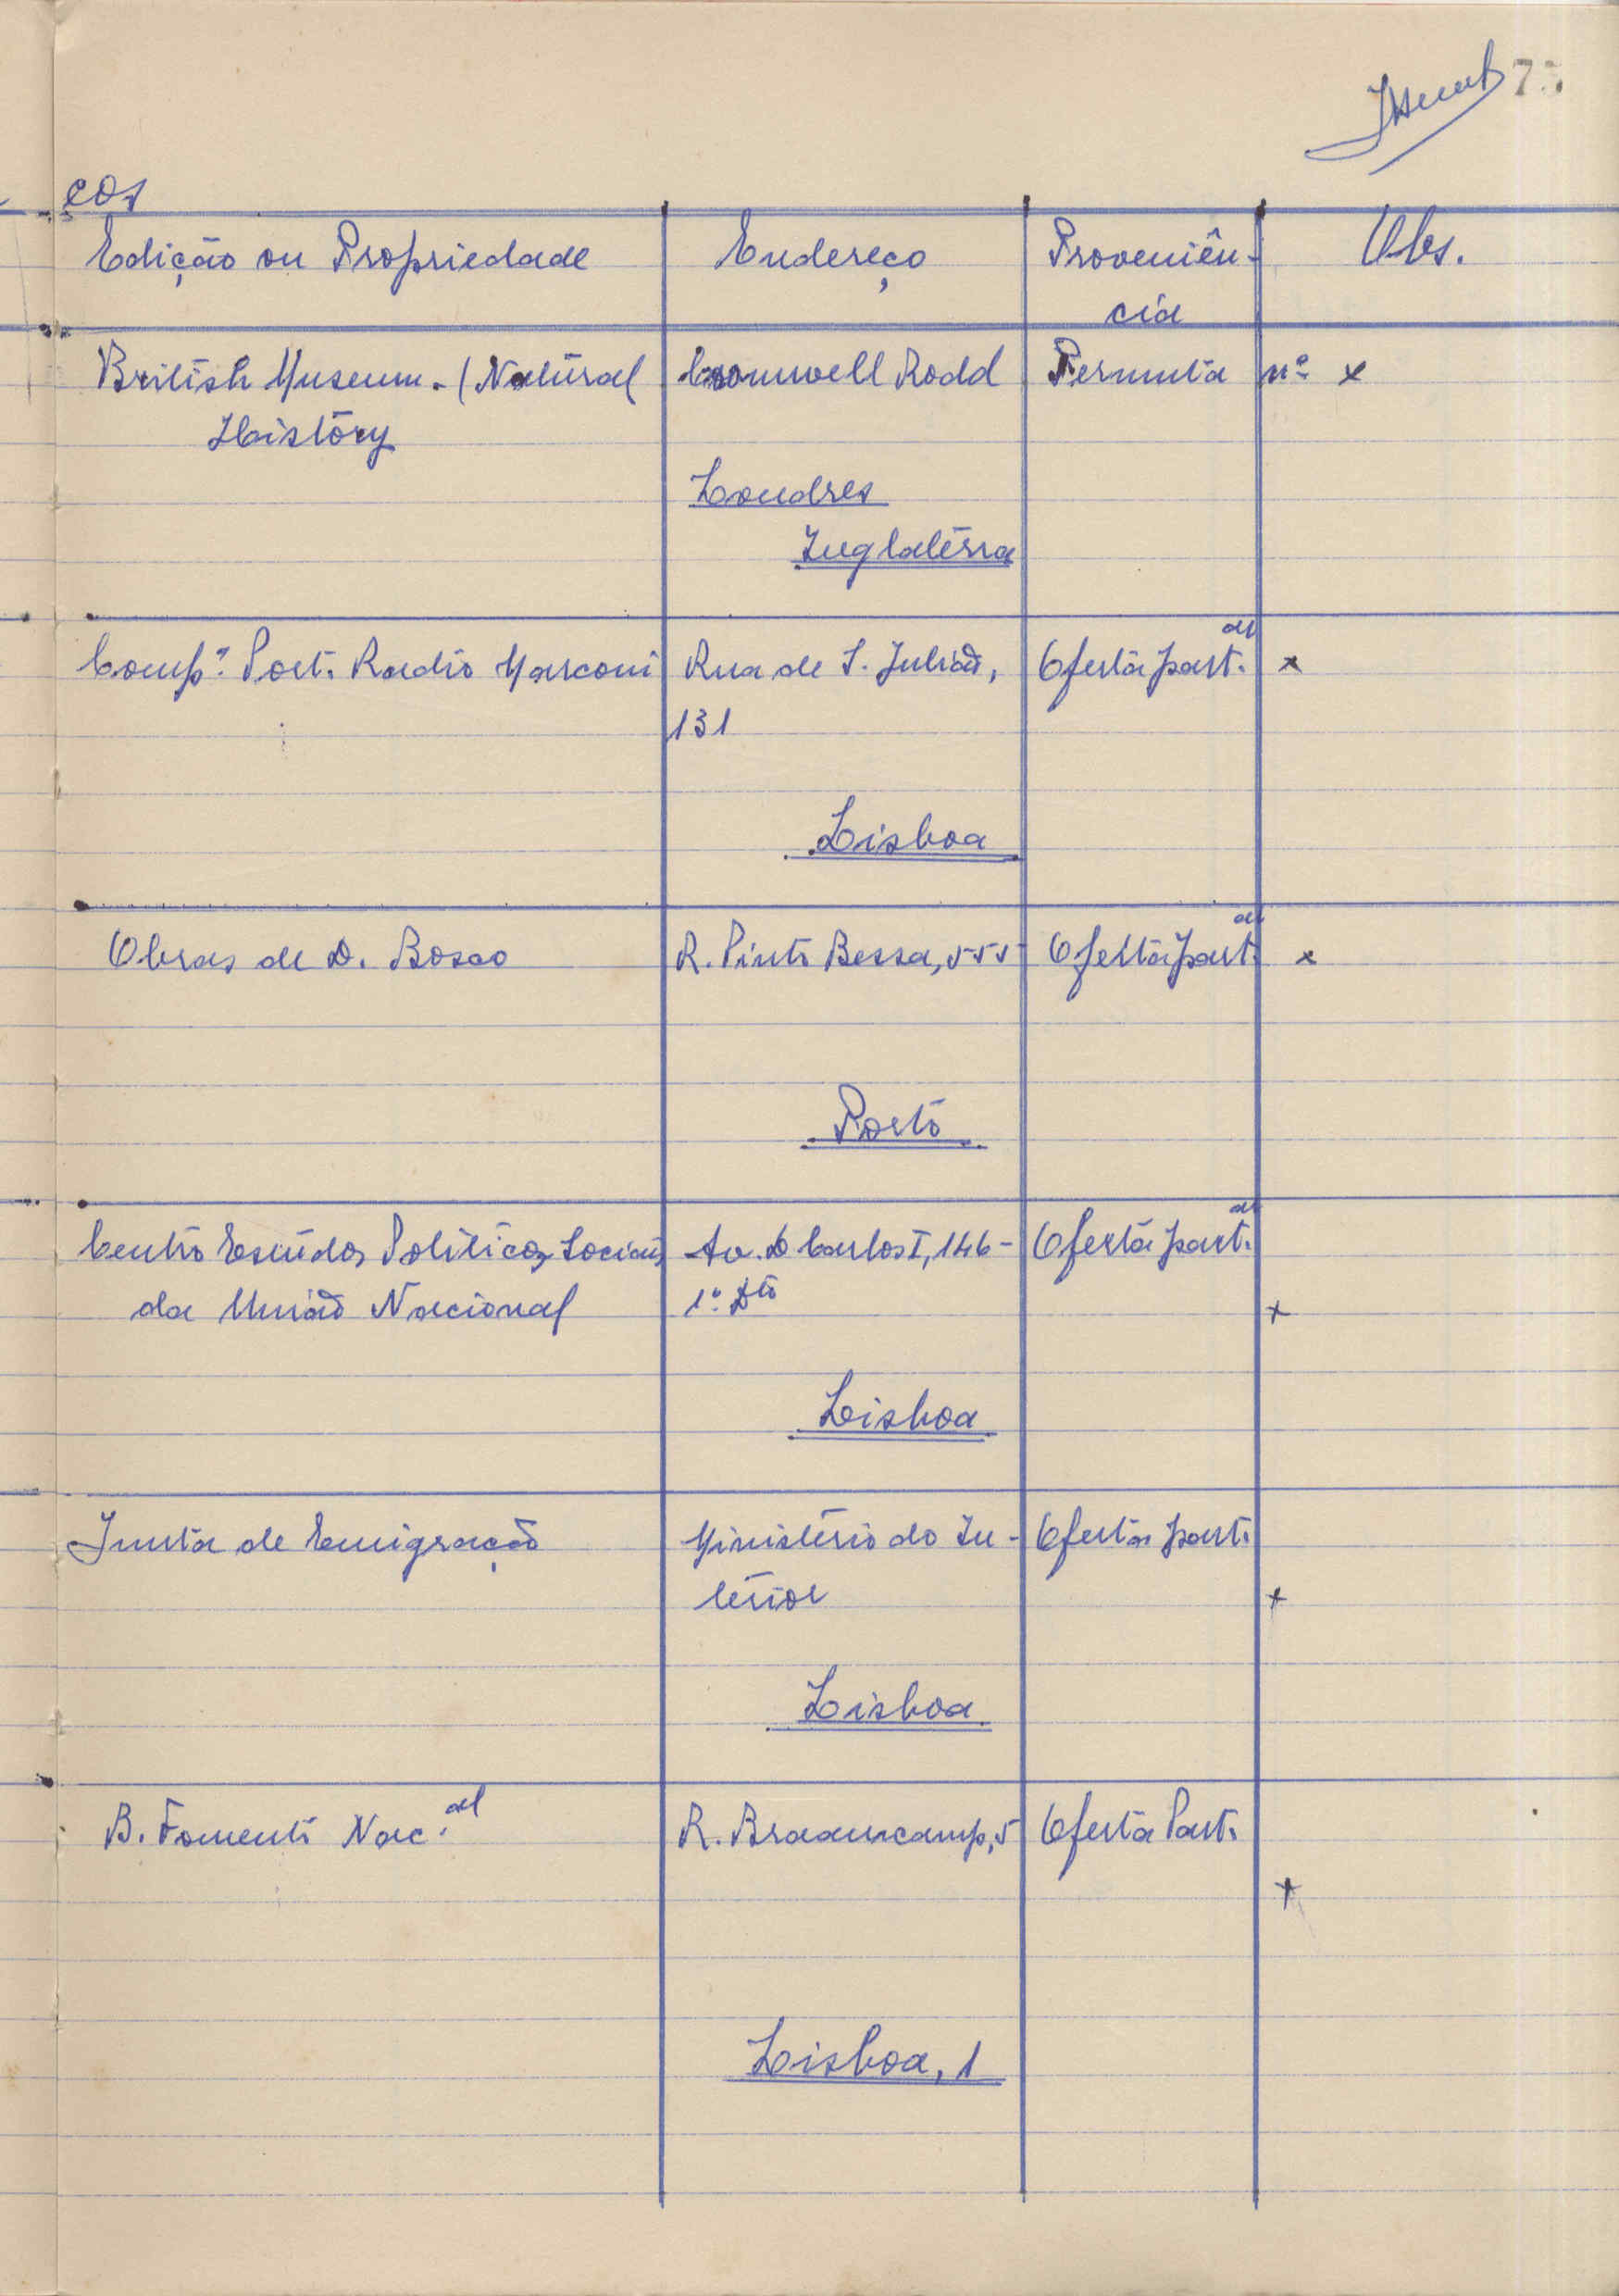 7
cos
Edição ou Propriedade Endereço Proveniên- Obs.
cia
British Museum. (Natural Cromwell Rodd Permuta nº x
History
Londres
Inglatérra
Compª. Port. Radio Marconi Rua de S. Julião, Oferta part. x
131
Lisboa
Obras de D. Bosco R. Pinto Bessa, 555 Oferta part. x
Porto
Centro Estudos Politicos Sociais Av. D Carlos I, 146- Oferta part.
da União Nacional 1º. Dto x
Lisboa
Junta de Emigração Ministério do In- Oferta part.
terior x
Lisboa
B. Fomento Nac.al R. Braamcamp, 5 Oferta Part.
x
Lisboa, 1